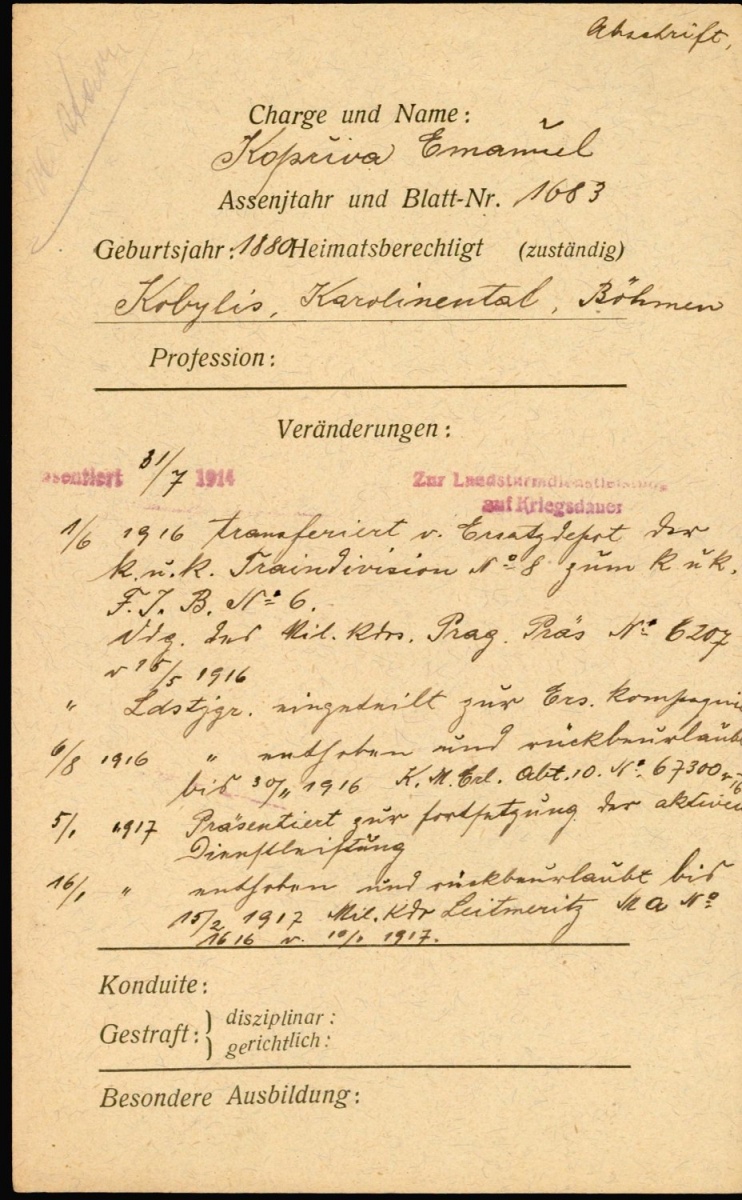 Abschrift,
Charge und Name:
Kopřiva Emanuel
Assenjtahr und Blatt-Nr. 1683
Geburtsjahr: 1880 Heimatsberechtigt (zuständig)
Kobylis, Karolinental, Böhmen
Profession:
Veränderungen:
sentiert 31/7 1914 Zur Landsturmdienstleistung
auf Kriegsdauer
1/6 1916 transferiert v. Ersatzdepot der
k.u.k. Traindivision No 8 zum k u k.
F. J. B. No 6.
Vdg. des Mil. Kdos. Prag. Präs No 6207
v 15/5 1916
" Ldstjgr. eingeteilt zur Ers. Kompagnie
6/8 1916 " enthoben und rückbeurlaubt
bis 30/11 1916 K. M. Erl. Abt. 10. No 67300
5/1 1917 Präsentiert zur Fortsetzung der aktiven
Dienstleistung
16/1 " enthoben und rückbeurlaubt bis
15/2 1917 Mil. Kdo Leitmeritz M A No
1616 v. 10/1 1917.
Konduite:
Gestraft: disziplinar:
gerichtlich:
Besondere Ausbildung: